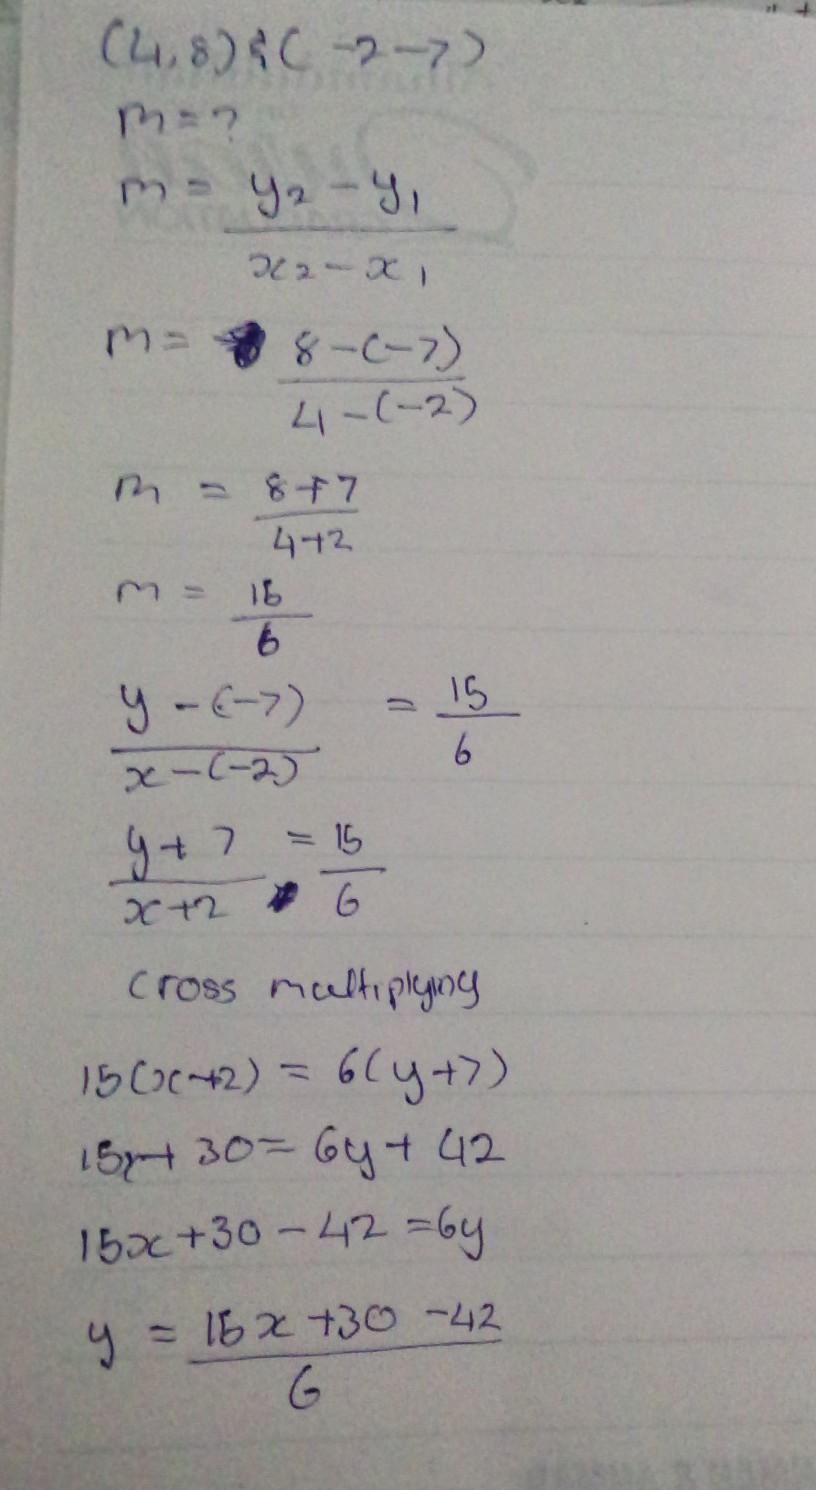 (4,8) & ( -2 -7)
m = ?
m = y₂ - y₁
x₂ - x₁
m = 8-(-7)
4-(-2)
m = 8+7
4+2
m = 15
6
y - (-7) = 15
x-(-2) 6
y + 7 = 15
x+2 6
Cross multiplying
15(x+2) = 6(y+7)
15x+ 30 = 6y + 42
15x+30 - 42 = 6y
y = 15x +30 -42
6